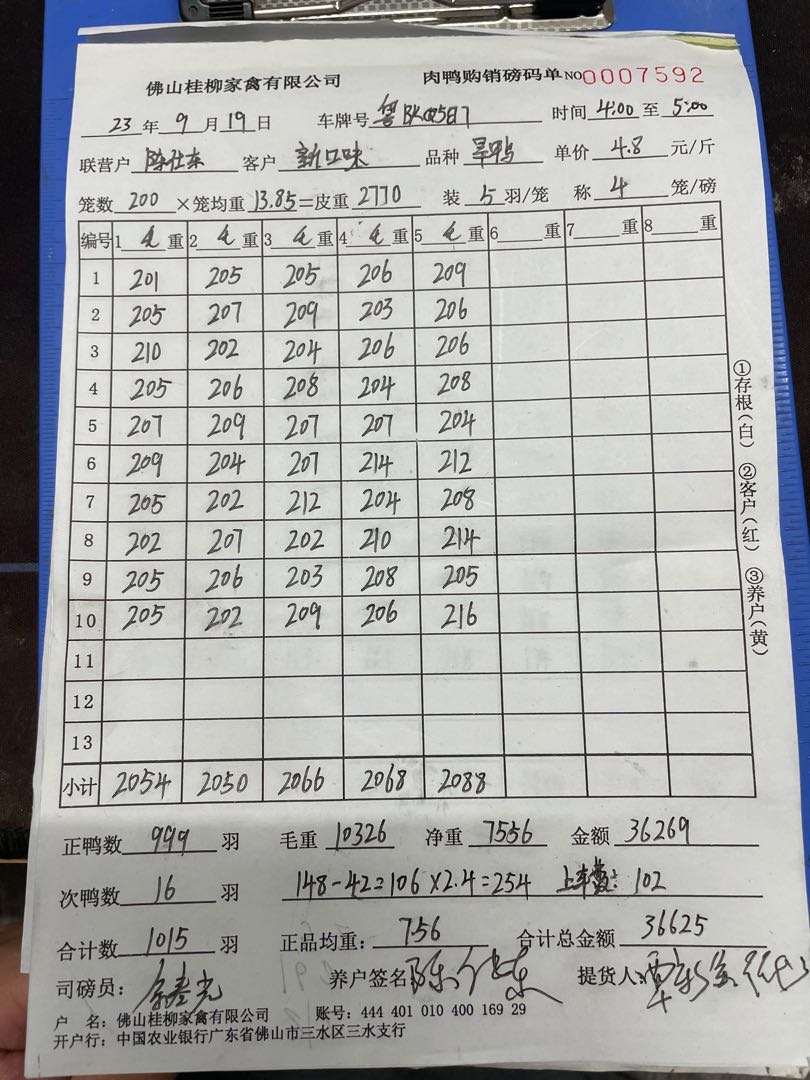 佛山桂柳家禽有限公司 肉鸭购销磅码单 NO0007592
23 年 9 月 19 日 车牌号 时间 4:00 至 5:00
联营户 陈仕东 客户 新口味 品种 旱鸭 单价 4.8 元/斤
笼数 200 ×笼均重 13.85=皮重 2770 装 5 羽/笼 称 4 笼/磅
编号 1 毛 重 2 毛 重 3 毛 重 4 毛 重 5 毛 重 6 重 7 重 8 重
1 201 205 205 206 209
2 205 207 209 203 206
3 210 202 204 206 206
4 205 206 208 204 208
5 207 209 207 207 204
6 209 204 207 214 212
7 205 202 212 204 208
8 202 207 202 210 214
9 205 206 203 208 205
10 205 202 209 206 216
11
12
13
小计 2054 2050 2066 2068 2088
①存根(白) ②客户(红) ③养户(黄)
正鸭数 999 羽 毛重 10326 净重 7556 金额 36269
次鸭数 16 羽 148-42=106×2.4=254 上车费: 102
合计数 1015 羽 正品均重: 7.56 合计总金额 36625
司磅员: 养户签名 陈仕东 提货人:
户 名: 佛山桂柳家禽有限公司 账号: 444 401 010 400 169 29
开户行: 中国农业银行广东省佛山市三水区三水支行